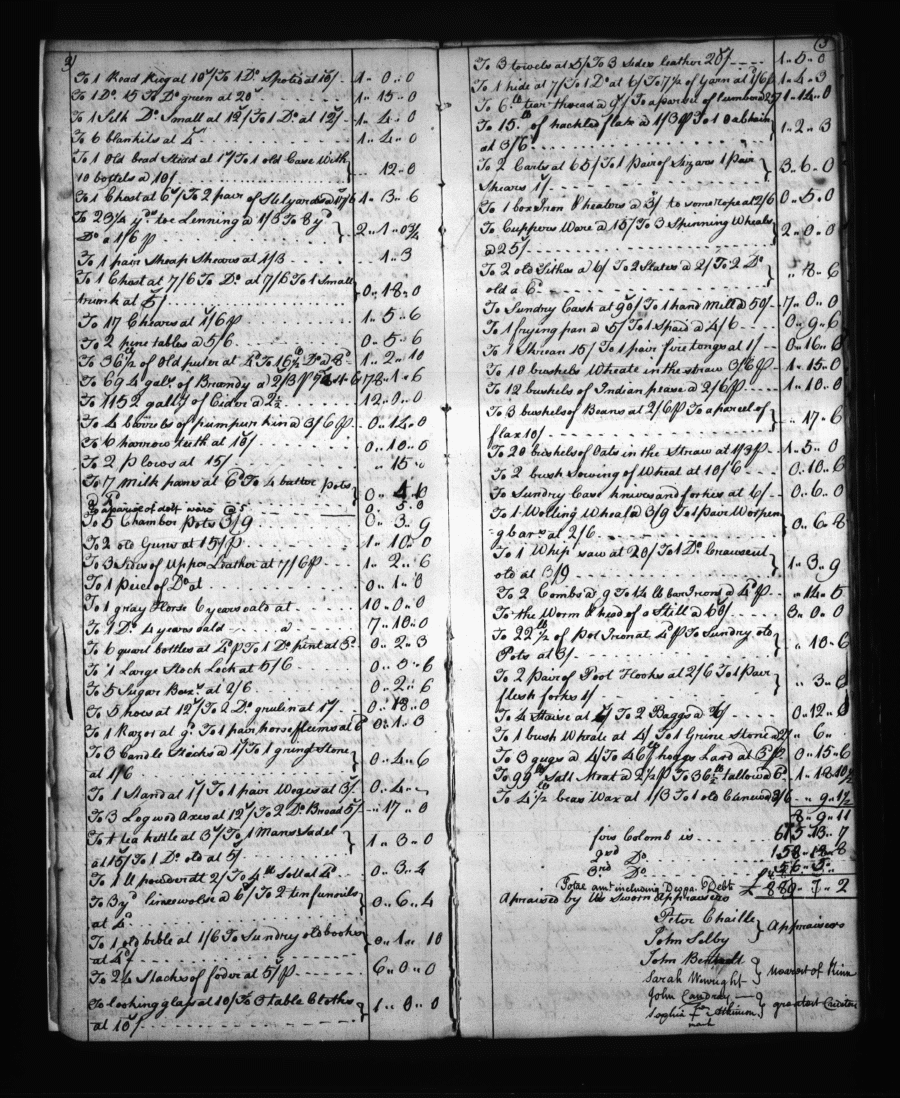 2)
To 1 Read Ruog at 10/ To 1 Do Spoted at 10/ 1 . 0 . 0
To 1 Do 15 To Do green at 20/ 1 . 15 . 0
To 1 Silk Do Small at 12/ To 1 Do at 12/ 1 . 4 . 0
To 6 blankits at 4/ 1 . 4 . 0
To 1 Old bead Stead at 1/ To 1 old Case With
10 bottels @ 10/ 12 . 0
To 1 Chest at 6/ To 2 pair of Stelyards @ 17/6 1 . 3 . 6
To 23 3/4 yds toe Lenning @ 1/3 To 8 yd
Do @ 1/6 P 2 . 1 . 0 3/4
To 1 pair Sheap Shears at 1/3 1 . 3
To 1 Chest at 7/6 To Do at 7/6 To 1 Small
trunk at 5/ 0 . 18 . 0
To 17 Chears at 1/6 P 1 . 5 . 6
To 2 pine tables @ 5/6 0 . 5 . 6
To 36 1/2 of Old puter at 4d To 16 1/2 Do @ 8d 1 . 2 . 10
To 694 galls of Brandy @ 2/3 P 78 . 1 . 6
To 1152 galls of Cider @ 2 1/2 12 . 0 . 0
To 4 barrils of pumpurkin @ 3/6 P 0 . 14 . 0
To 6 harrow teeth at 10/ 0 . 10 . 0
To 2 Plows at 15/ " 15 . 0
To 7 Milk pans at 6d To 4 butter Pots
0 . 4 . 0
To a parcue of delf ware @ 5 0 . 5 . 0
To 5 Chamber Pots 3/9 0 . 3 . 9
To 2 old Guns at 15/P 1 . 10 . 0
To 3 Sides of Upper Leather at 7/6 P 1 . 2 . 6
To 1 Piece of Do at 0 . 1 . 0
To 1 gray Horse 6 years oald at 10 . 0 . 0
To 1 Do 4 years oald @ 7 . 10 . 0
To 6 quart bottles at 4d P To 1 Do pint at 3d 0 . 2 . 3
To 1 Large Stock Lock at 5/6 0 . 5 . 6
To 5 Sugar Boxs at 2/6 0 . 2 . 6
To 5 hoes at 12/ To 2 Do grubin at 1/ 0 . 13 . 0
To 1 Razor at 9d To 1 pair horse fleems at 6 0 . 1 . 3
To 3 Candle Stacks @ 1/ To 1 gringt Stone
at 1/6 0 . 4 . 6
To 1 Stand at 1/ To 1 pare Weges at 3/ 0 . 4 .
To 3 Log wood Axes at 12/ To 2 Do Broad 5/ " 17 . 0
To 1 tea kettle at 3/ To 1 Mans Sadel
at 15/ To 1 Do old at 5/ 1 . 3 . 0
To 1 lb powder at 2/ To 4 lb Salt at 4d 0 . 3 . 4
To 3 yd linsewolse @ 6/ To 2 ten funnils
at 4d 0 . 6 . 4
To 1 old bible at 1/6 To Sundry old books
at 4d/ 0 . 1 . 10
To 24 Stacks of foder at 5/P 6 . 0 . 0
To looking glass at 10/ To 3 table Cloths
at 10/ 1 . 0 . 0
3
To 3 towels at 5/ To 3 Sides leather 20/ 1 . 5 . 0
To 1 hide at 7/ To 1 Do at 6/ To 7 1/2 of Yarn at 1/6 1 . 4 . 3
To 6 lb tear thread @ 9/ To a parcue of lumber @ 27 1 . 14 . 0
To 15 lb of hackled flax @ 1/3 P To 1
at 3/6 1 . 2 . 3
To 2 Carts at 65/ To 1 Pair of Sizars 1 pair
Shears 1/ 3 . 6 . 0
To 1 box Iron & heators @ 3/ to some rope at 2/6 0 . 5 . 0
To Cuppers Ware @ 15/ To 3 Spinning Wheals
@ 25/ 2 . 0 . 0
To 2 old Sithes @ 6/ To 2 Slates @ 2/ To 2 Do
old @ 6d " 8 . 6
To Sundry Cask at 90/ To 1 hand Mill @ 50/ 7 . 0 . 0
To 1 frying pan @ 5/ To 1 Spaid @ 4/6 0 . 9 . 6
To 1 Skrean 15/ To 1 pair fire tongs at 1/ 0 . 16 . 0
To 10 bushels Wheate in the straw 3/6 P 1 . 15 . 0
To 12 bushels of Indian pease @ 2/6 P 1 . 10 . 0
To 3 bushels of Beans at 2/6 P To a parcel of
flax 10/ " 17 . 6
To 20 bushels of Oats in the Straw at 1/3 P 1 . 5 . 0
To 2 bush Sowing of Wheat at 10/6 0 . 10 . 6
To Sundry Case knives and forkes at 6/ 0 . 6 . 0
To 1 Wolling Wheal @ 3/9 To 1 Pare Worpin
g bars at 2/6 0 . 6 . 8
To 1 Whip Saw at 20/ To 1 Do
old at 3/9 1 . 3 . 9
To 2 Combs @ 9 To 41 lb bar Iron @ 4d P " 14 . 5
To the Worm & head of a Still @ 60/ 3 . 0 . 0
To 22 1/2 lb of Pot Iron at 4d P To Sundry old
Pots at 3/ " 10 . 6
To 2 Pair of Poot Hooks at 2/6 To 1 pair
flesh forks 1/ " 3 . 6
To 4 Staise at To 2 Baggs @ 0 . 12 . 0
To 1 bush Wheate at 4/ To 1 Grine Stone @ 2/ " 6 .
To 3 gugs @ 4/ To 46 lb hoggs Lard at 3d P 0 . 15 . 6
To 99 lb Salt Meat @ 2 1/2 P To 36 1/2 lb tallow @ 6d 1 . 18 . 10 1/2
To 4 1/2 beas Wax at 1/3 To 1 old 3/6 " 9 . 1 1/2
8 . 9 . 11
firs Colomb is 675 . 13 . 7
2nd Do 158 . 18 . 8
3rd Do 56 . 5 .
Total amt including Debts £ 889 . 7 . 2
Apraised by Us Sworn Appraisers
Peter Chaille
John Selby } Appraisers
John
Sarah Winright } Nearest of Kinn
John Landrey
Sophia Atkinson } greatest Creditors
mark